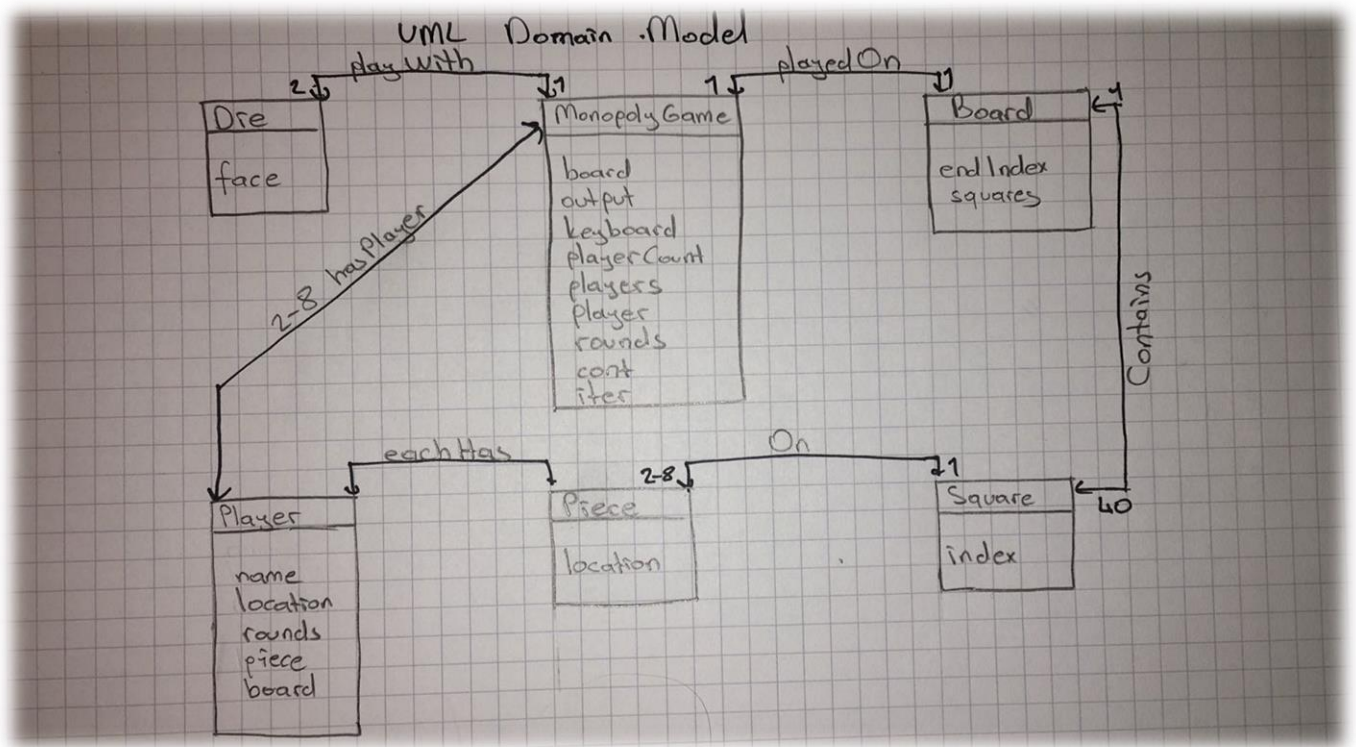 UML Domain Model
playWith
playedOn
2
1
1
1
1
Die
face
MonopolyGame
board
output
keyboard
playerCount
players
player
rounds
cont
iter
Board
endIndex
squares
2-8 hasPlayer
Contains
eachHas
On
2-8
1
40
Player
name
location
rounds
piece
board
Piece
location
Square
index